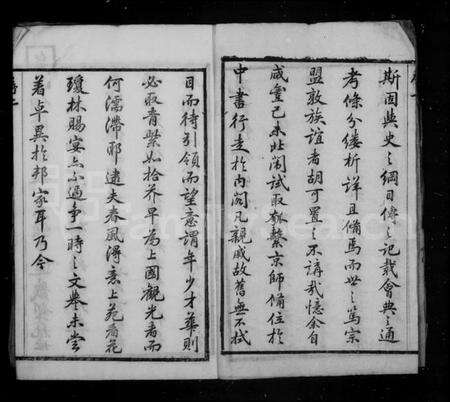 斯固與史之綱目傳之記載會典之通
考條分縷析詳且備焉而世之篤宗
盟敦族誼者胡可置之不講哉憶余自
咸豐己未北闈試取孤繫京師備位於
中書行走於內閣凡親戚故舊無不拭
目而待引領而望意謂年少才華則
必取青紫如拾芥早為上國觀光者而
何濡滯耶逮夫春風得意上苑看花
瓊林賜宴亦不過爭一時之文譽未嘗
著卓異於邦家耳乃今